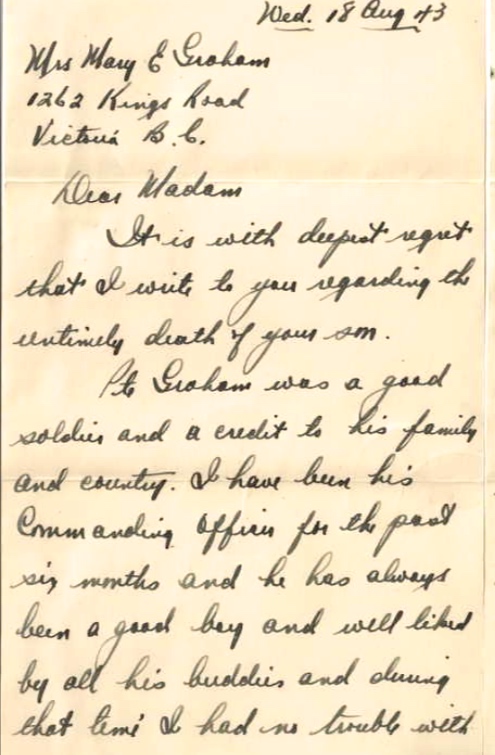 Wed. 18 Aug 43
Mrs Mary E Graham
1262 Kings Road
Victoria B.C.
Dear Madam
It is with deepest regret
that I write to you regarding the
untimely death of your son.
Pte Graham was a good
soldier and a credit to his family
and country. I have been his
Commanding Officer for the past
six months and he has always
been a good boy and well liked
by all his buddies and during
that time I had no trouble with